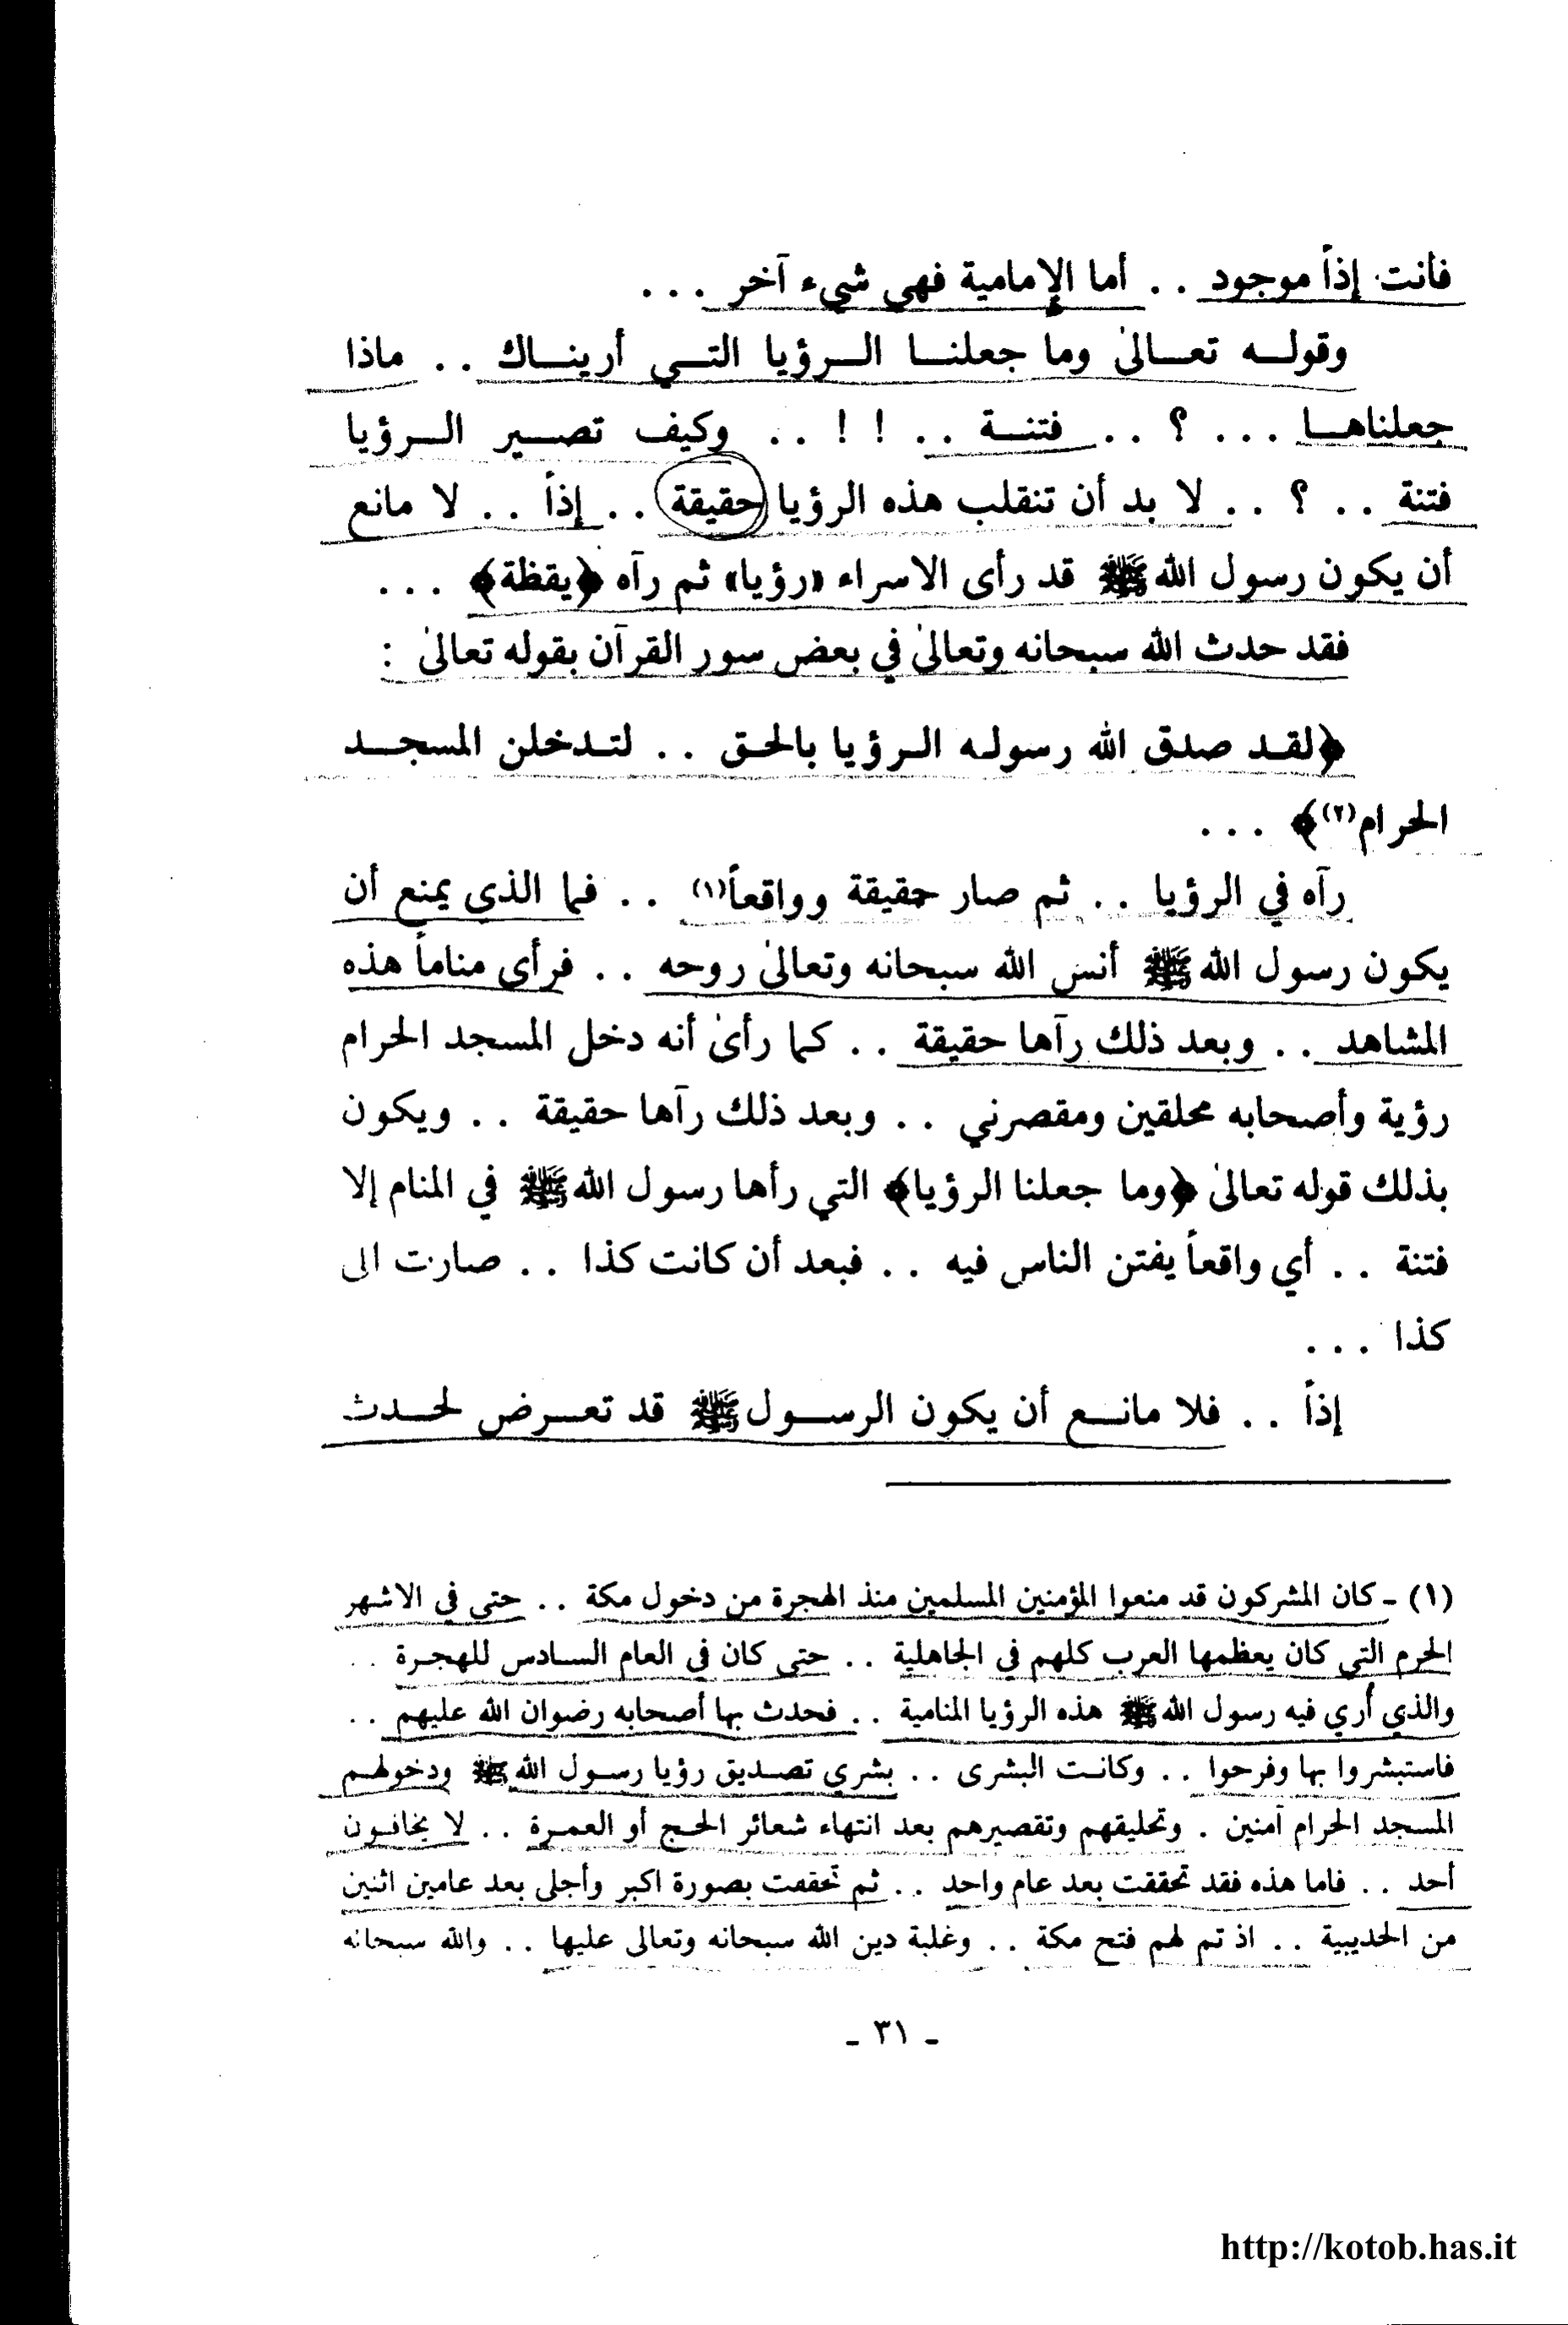 فأنت إذاً موجود . . أما الإمامية فهي شيء آخر . . .
وقوله تعالىٰ وما جعلنا الرؤيا التي أريناك . . ماذا
جعلناها . . . ؟ . . فتنة . . ! ! . . وكيف تصير الرؤيا
فتنة . . ؟ . . لا بد أن تنقلب هذه الرؤيا حقيقة . . إذاً . . لا مانع
أن يكون رسول الله ﷺ قد رأى الاسراء «رؤيا» ثم رآه ﴿يقظة﴾ . . .
فقد حدث الله سبحانه وتعالىٰ في بعض سور القرآن بقوله تعالىٰ :
﴿لقد صدق الله رسوله الرؤيا بالحق . . لتدخلن المسجد
الحرام(٢)﴾ . . .
رآه في الرؤيا . . ثم صار حقيقة وواقعاً(١) . . فما الذي يمنع أن
يكون رسول الله ﷺ أنس الله سبحانه وتعالىٰ روحه . . فرأى مناماً هذه
المشاهد . . وبعد ذلك رآها حقيقة . . كما رأىٰ أنه دخل المسجد الحرام
رؤية وأصحابه محلقين ومقصرني . . وبعد ذلك رآها حقيقة . . ويكون
بذلك قوله تعالىٰ ﴿وما جعلنا الرؤيا﴾ التي رأها رسول الله ﷺ في المنام إلا
فتنة . . أي واقعاً يفتن الناس فيه . . فبعد أن كانت كذا . . صارت الى
كذا . . .
إذاً . . فلا مانع أن يكون الرسول ﷺ قد تعرض لحدث
(١) - كان المشركون قد منعوا المؤمنين المسلمين منذ الهجرة من دخول مكة . . حتى في الاشهر
الحرم التي كان يعظمها العرب كلهم في الجاهلية . . حتى كان في العام السادس للهجرة . .
والذي أري فيه رسول الله ﷺ هذه الرؤيا المنامية . . فحدث بها أصحابه رضوان الله عليهم . .
فاستبشروا بها وفرحوا . . وكانت البشرى . . بشري تصديق رؤيا رسول الله ﷺ ودخولهم
المسجد الحرام آمنين . وتحليقهم وتقصيرهم بعد انتهاء شعائر الحج أو العمرة . . لا يخافون
أحد . . فاما هذه فقد تحققت بعد عام واحد . . ثم تحققت بصورة اكبر وأجلى بعد عامين اثنين
من الحديبية . . اذ تم لهم فتح مكة . . وغلبة دين الله سبحانه وتعالى عليها . . والله سبحانه
- ٣١ -
http://kotob.has.it